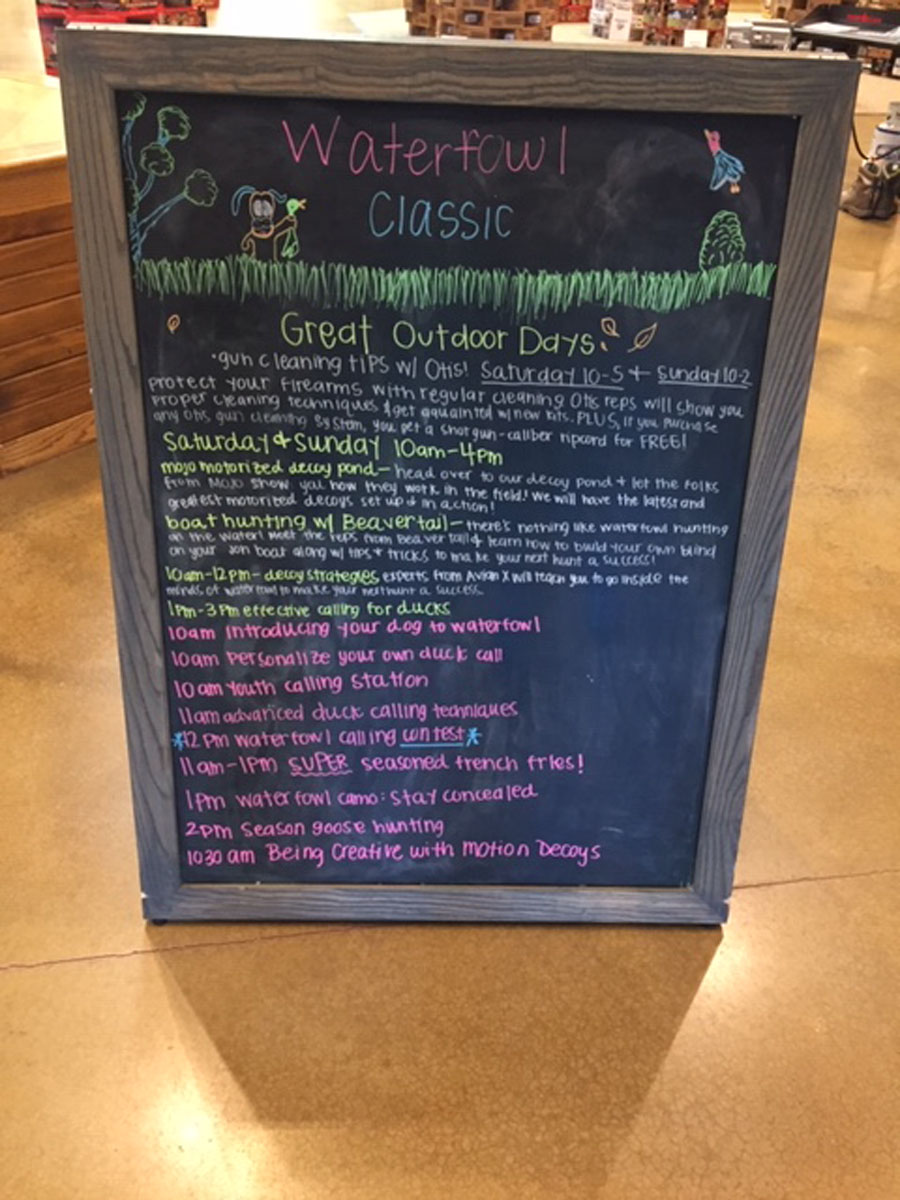 Waterfowl
Classic
Great Outdoor Days
•gun cleaning tips w/ Otis! Saturday 10-5 + Sunday 10-2
protect your firearms with regular cleaning Otis reps will show you
proper cleaning techniques & get aquainted w/ new kits. PLUS, if you purchase
any otis gun cleaning system, you get a shotgun-caliber ripcord for FREE!
Saturday & Sunday 10am-4pm
mojo motorized decoy pond- head over to our decoy pond + let the folks
from MOJO show you how they work in the field! We will have the latest and
greatest motorized decoys set up + in action!
boat hunting w/ Beavertail- there's nothing like waterfowl hunting
on the water! Meet the reps from Beavertail & learn how to build your own blind
on your jon boat along w/ tips + tricks to make your next hunt a success!
10am-12pm- decoy strategies experts from Avian X will teach you to go inside the
minds of waterfowl to make your next hunt a success.
1pm-3pm effective calling for ducks
10am introducing your dog to waterfowl
10am personalize your own duck call
10am youth calling station
11am advanced duck calling techniques
*12pm waterfowl calling contest*
11am-1pm SUPER seasoned french fries!
1pm waterfowl camo: stay concealed
2pm season goose hunting
1030 am Being Creative with Motion Decoys